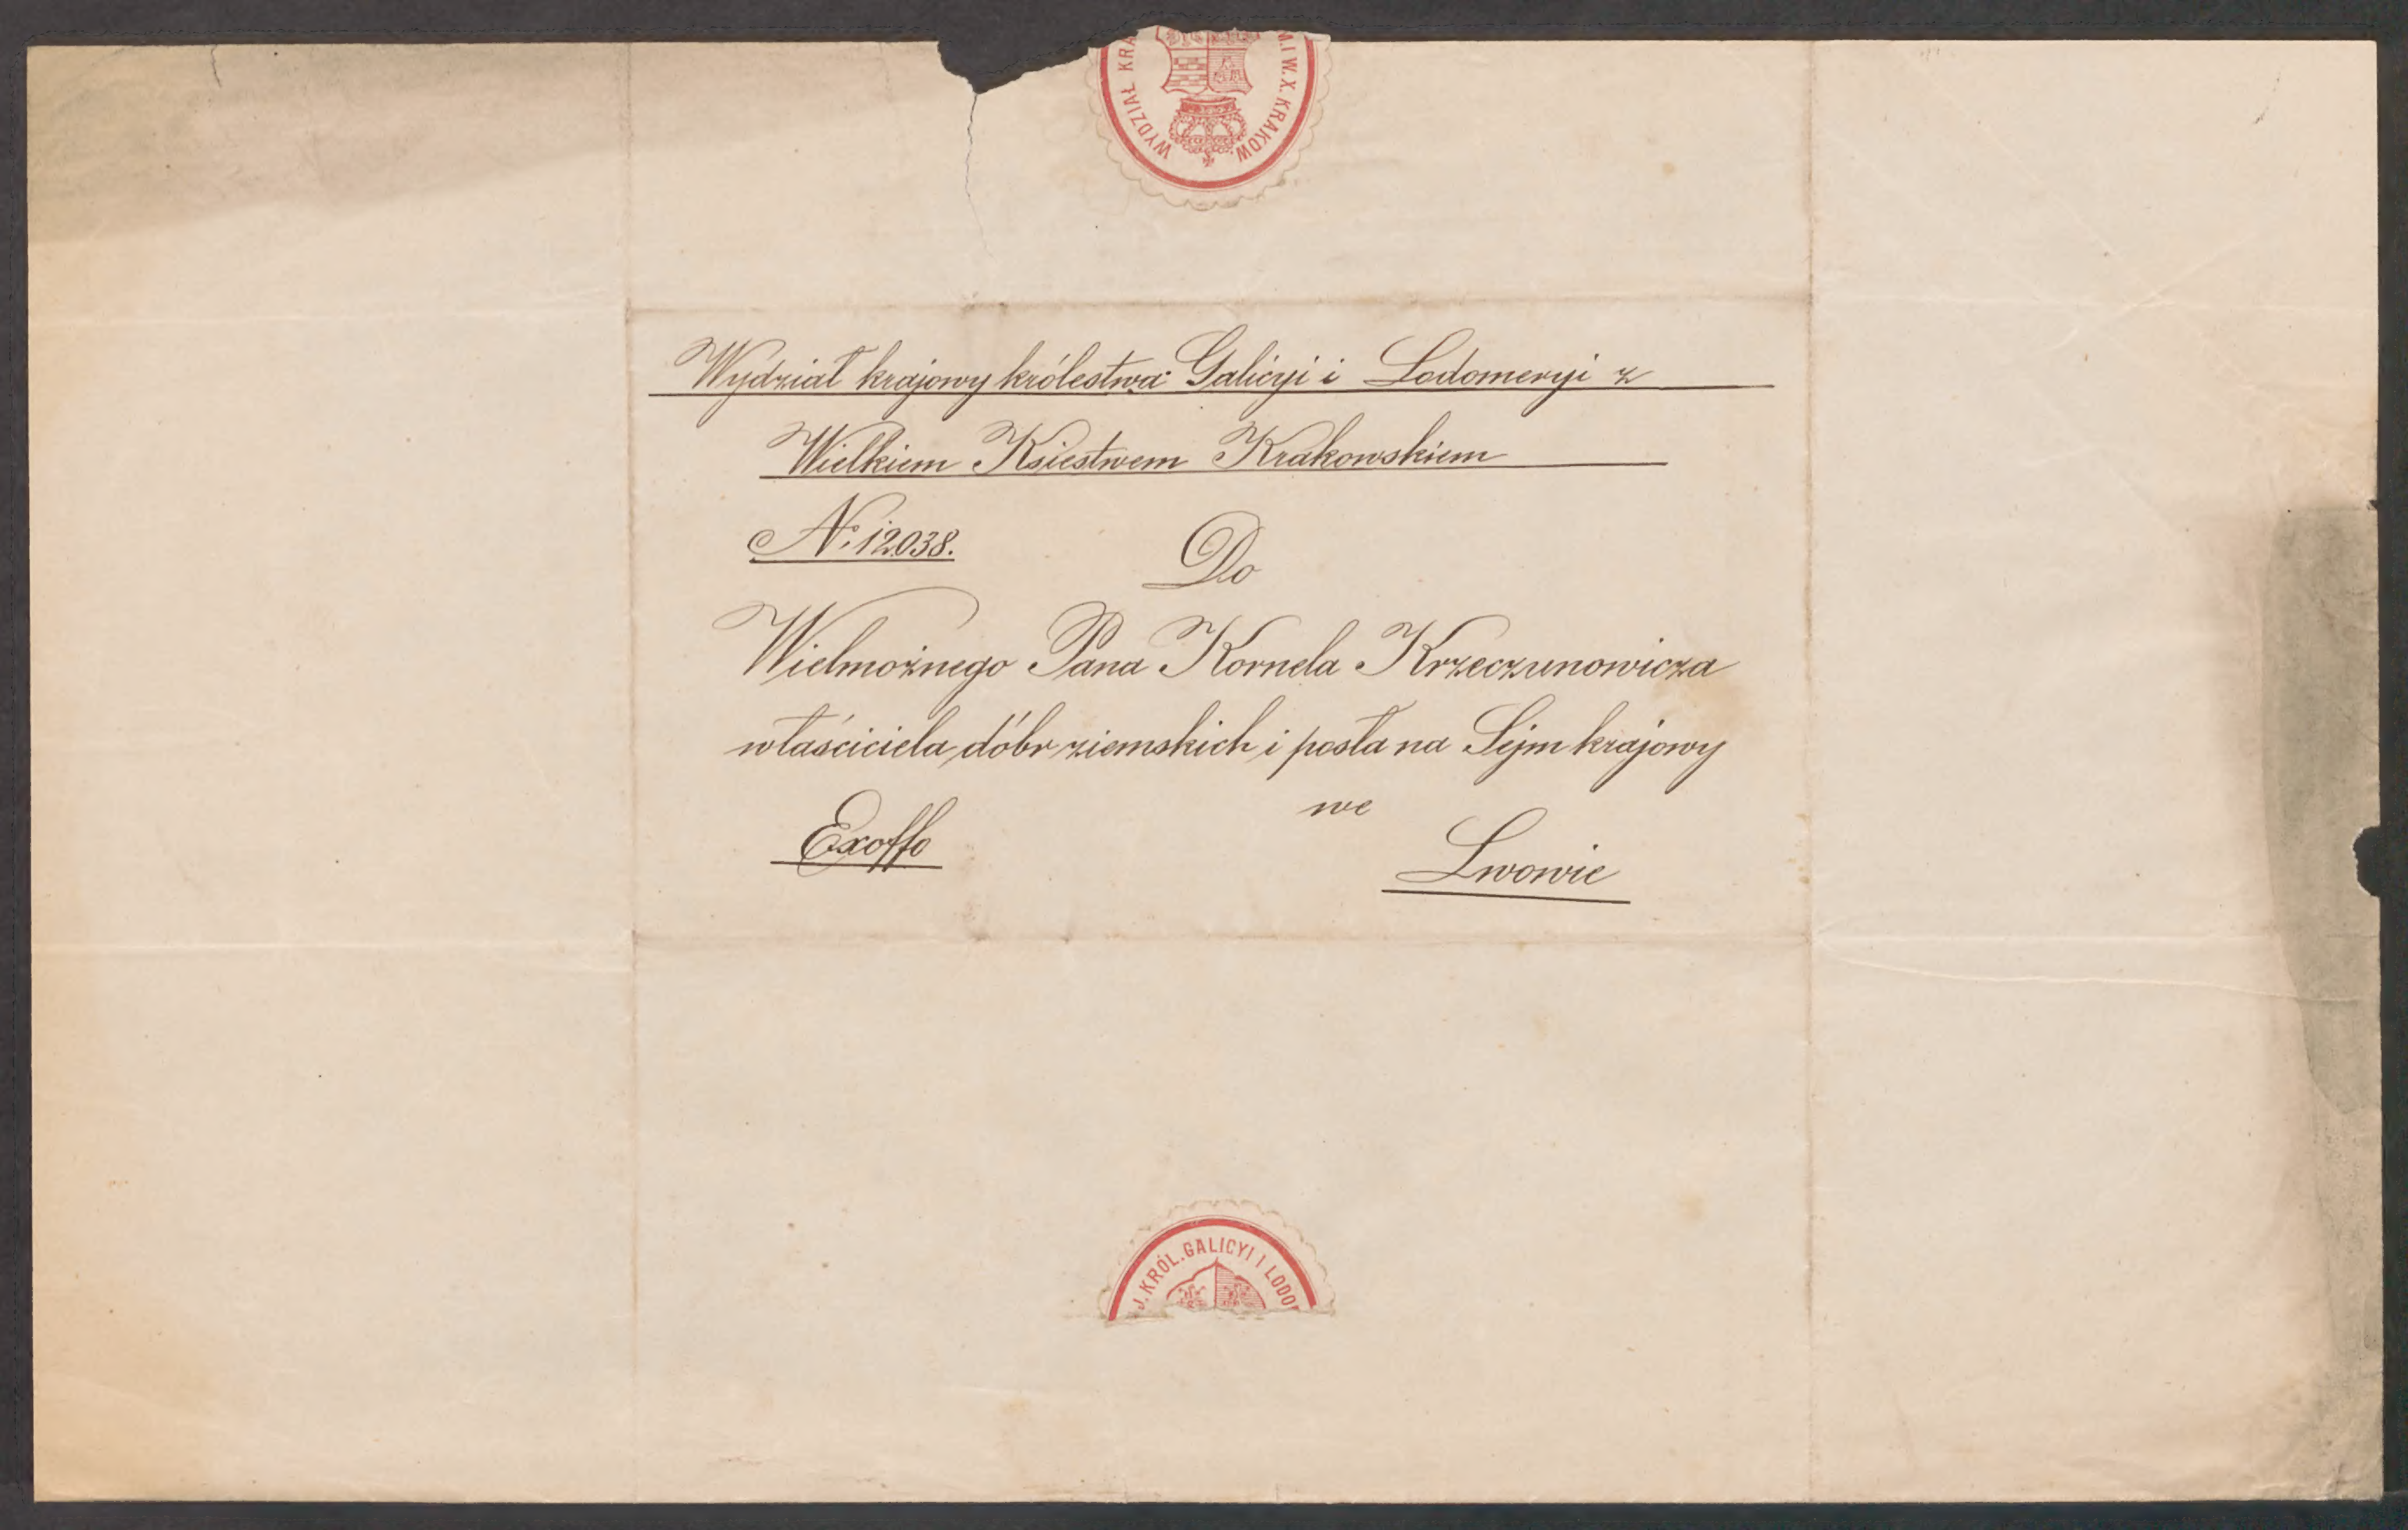 WYDZIAŁ KRA
M. I W. X. KRAKOW
Wydział krajowy królestwa Galicyi i Lodomeryi z
Wielkiem Ksiestwem Krakowskiem
No. 12038.
Do
Wielmożnego Pana Kornela Krzeczunowicza
właściciela dóbr ziemskich i posła na Sejm krajowy
we
Exoffo
Lwowie
J. KRÓL. GALICYI I LODO